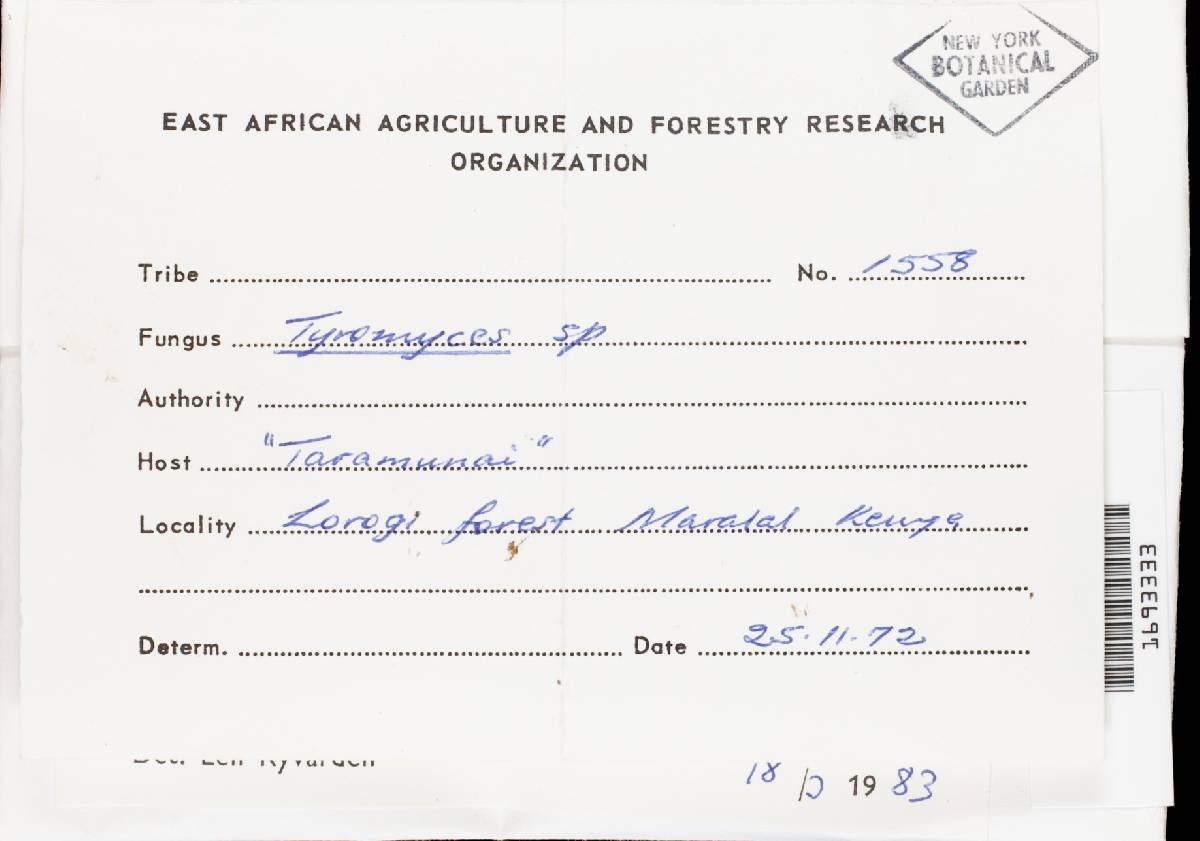 NEW YORK
BOTANICAL
GARDEN
EAST AFRICAN AGRICULTURE AND FORESTRY RESEARCH
ORGANIZATION
Tribe No. 1558
Fungus Tyromyces sp
Authority
Host "Taramunai"
Locality Lorogi forest Maralal Kenya
Determ. Date 25.11.72
Det. Leif Ryvarden
18/ 1983